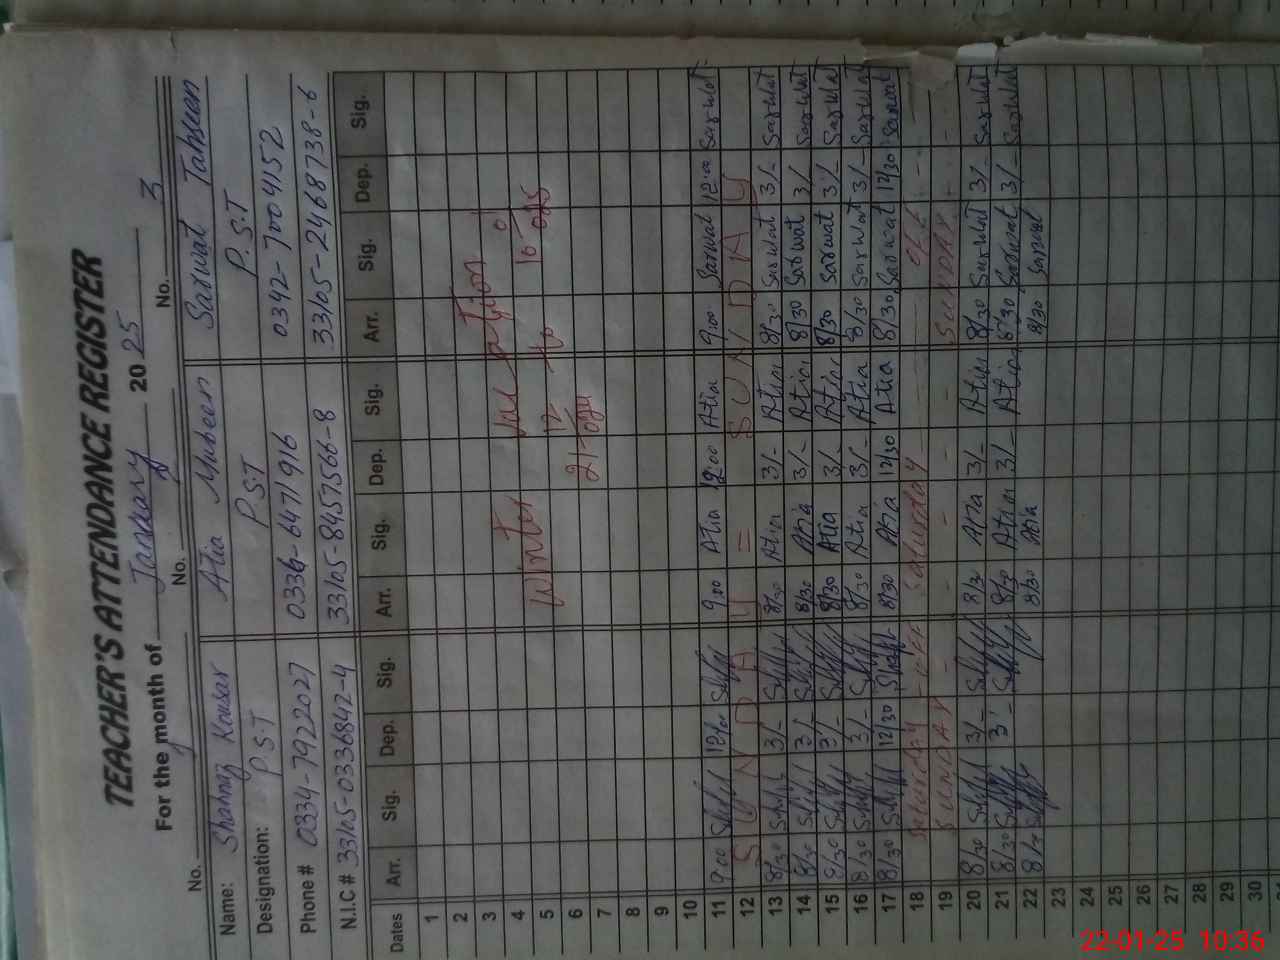 TEACHER'S ATTENDANCE REGISTER
For the month of January 2025
No. No. No. 3
Name: Shahnaz Kousar Atia Mubeen Sarwat Tahseen
Designation: P.S.T P.S.T P.S.T
Phone # 0334-7922027 0336-6471916 0342-7004152
N.I.C # 33105-0336842-4 33105-8457566-8 33105-2468738-6
Dates Arr. Sig. Dep. Sig. Arr. Sig. Dep. Sig. Arr. Sig. Dep. Sig.
1
2
3
4 Winter
5 to
6
7
8
9
10
11 9:00 12:00 9:00 Atia 12:00 Atia 9:00 Sarwat 12:00 Sarwat
12 SUNDAY = SUNDAY
13 8/30 3/- 8/30 Atia 3/- Atia 8/30 Sarwat 3/- Sarwat
14 8/30 3/- 8/30 Atia 3/- Atia 8/30 Sarwat 3/- Sarwat
15 8/30 3/- 8/30 Atia 3/- Atia 8/30 Sarwat 3/- Sarwat
16 8/30 3/- 8/30 Atia 3/- Atia 8/30 Sarwat 3/- Sarwat
17 8/30 12/30 8/30 Atia 12/30 Atia 8/30 Sarwat 12/30 Sarwat
18 Saturday - OFF Saturday OFF
19 SUNDAY - - - SUNDAY - -
20 8/30 3/- 8/30 Atia 3/- Atia 8/30 Sarwat 3/- Sarwat
21 8/30 3/- 8/30 Atia 3/- Atia 8/30 Sarwat 3/- Sarwat
22 8/30 8/30 Atia 8/30 Sarwat
23
24
25
26
27
28
29
30
22-01-25 10:36